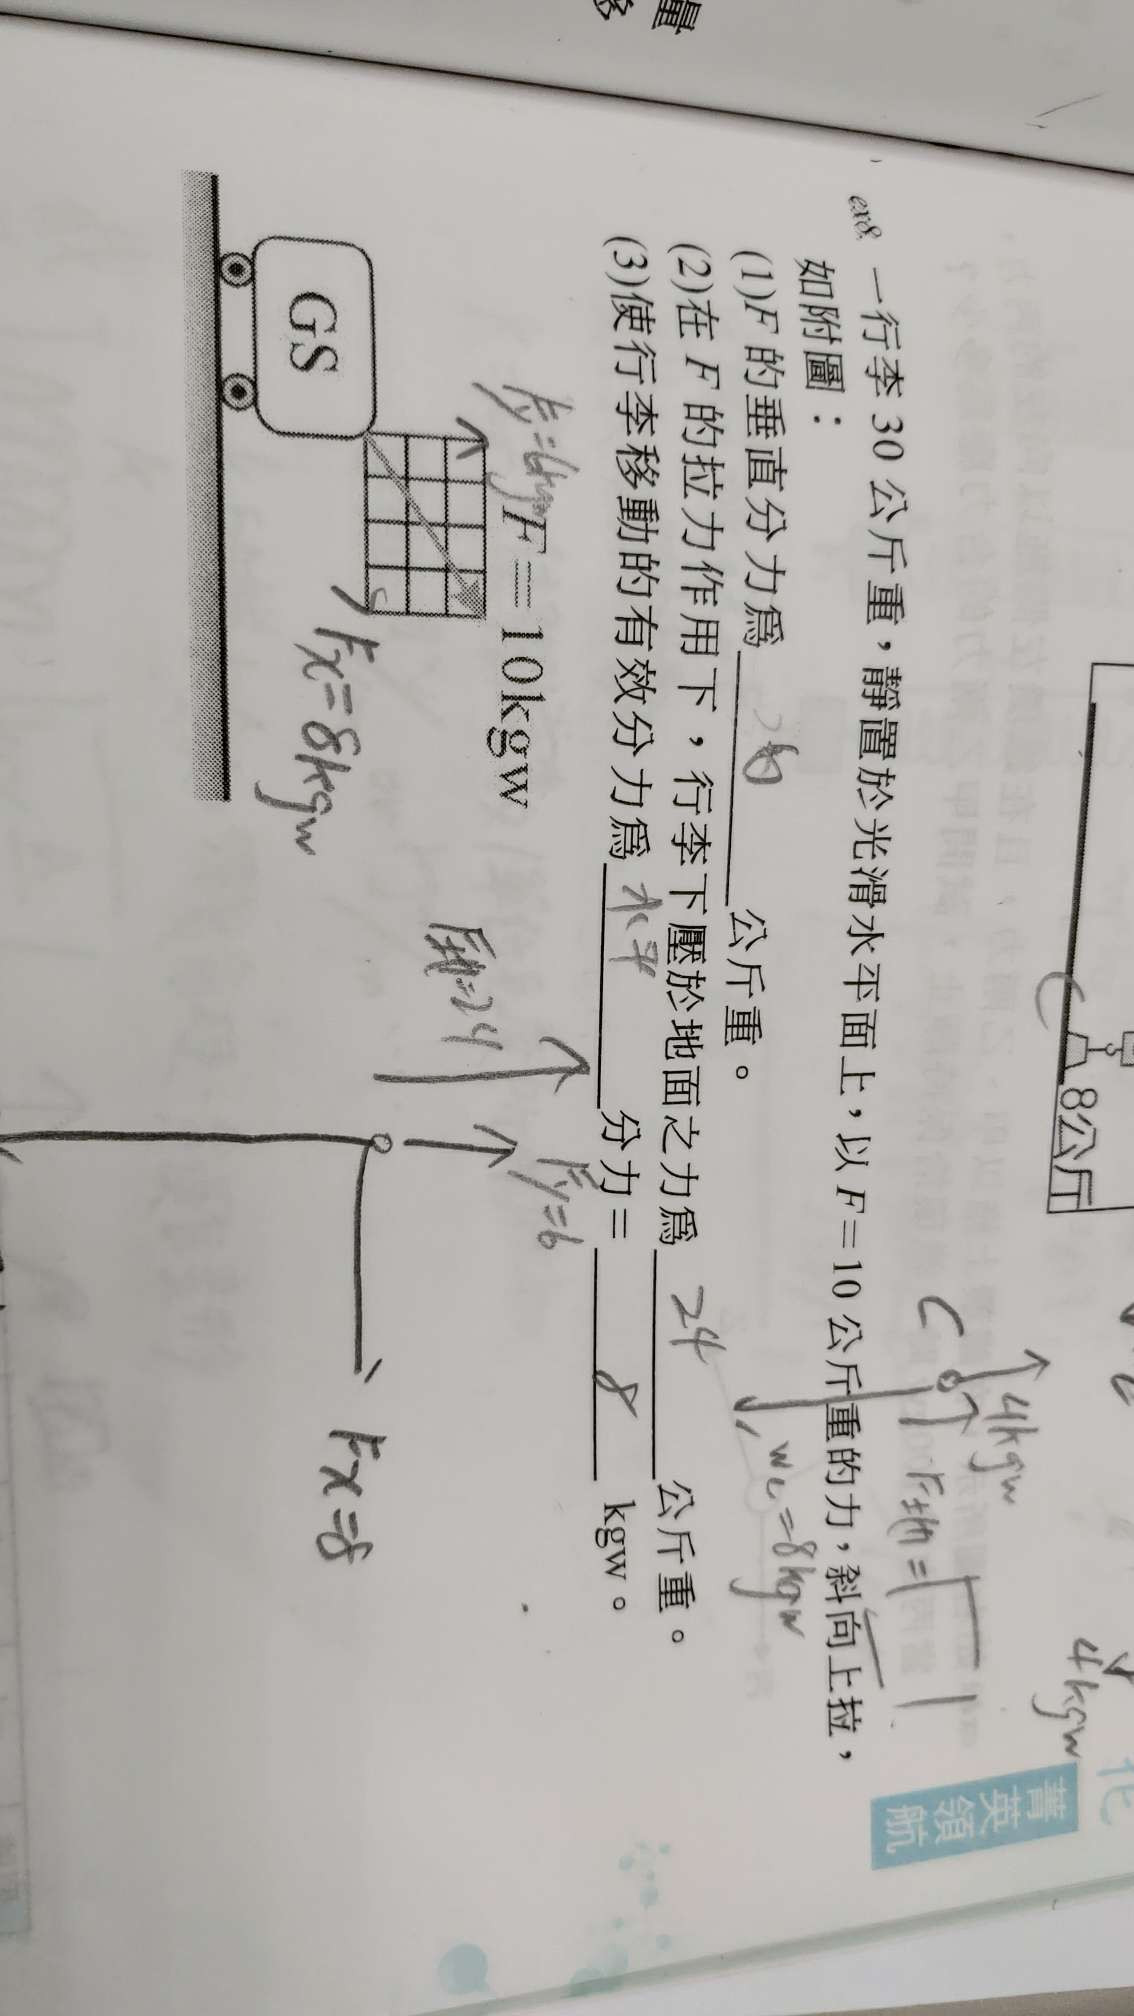 量
8公斤
4kgw
4kgw
C
F地=
菁英領航
ex8. 一行李 30 公斤重，靜置於光滑水平面上，以 F＝10 公斤重的力，斜向上拉，
如附圖：
Wc=8kgw
(1)F 的垂直分力為 公斤重。
(2)在 F 的拉力作用下，行李下壓於地面之力為 24 公斤重。
(3)使行李移動的有效分力為 水平 分力＝ 8 kgw。
Fy=6kgw
F＝10kgw
GS
Fx=8kgw
F地=24
Fy=6
Fx=8